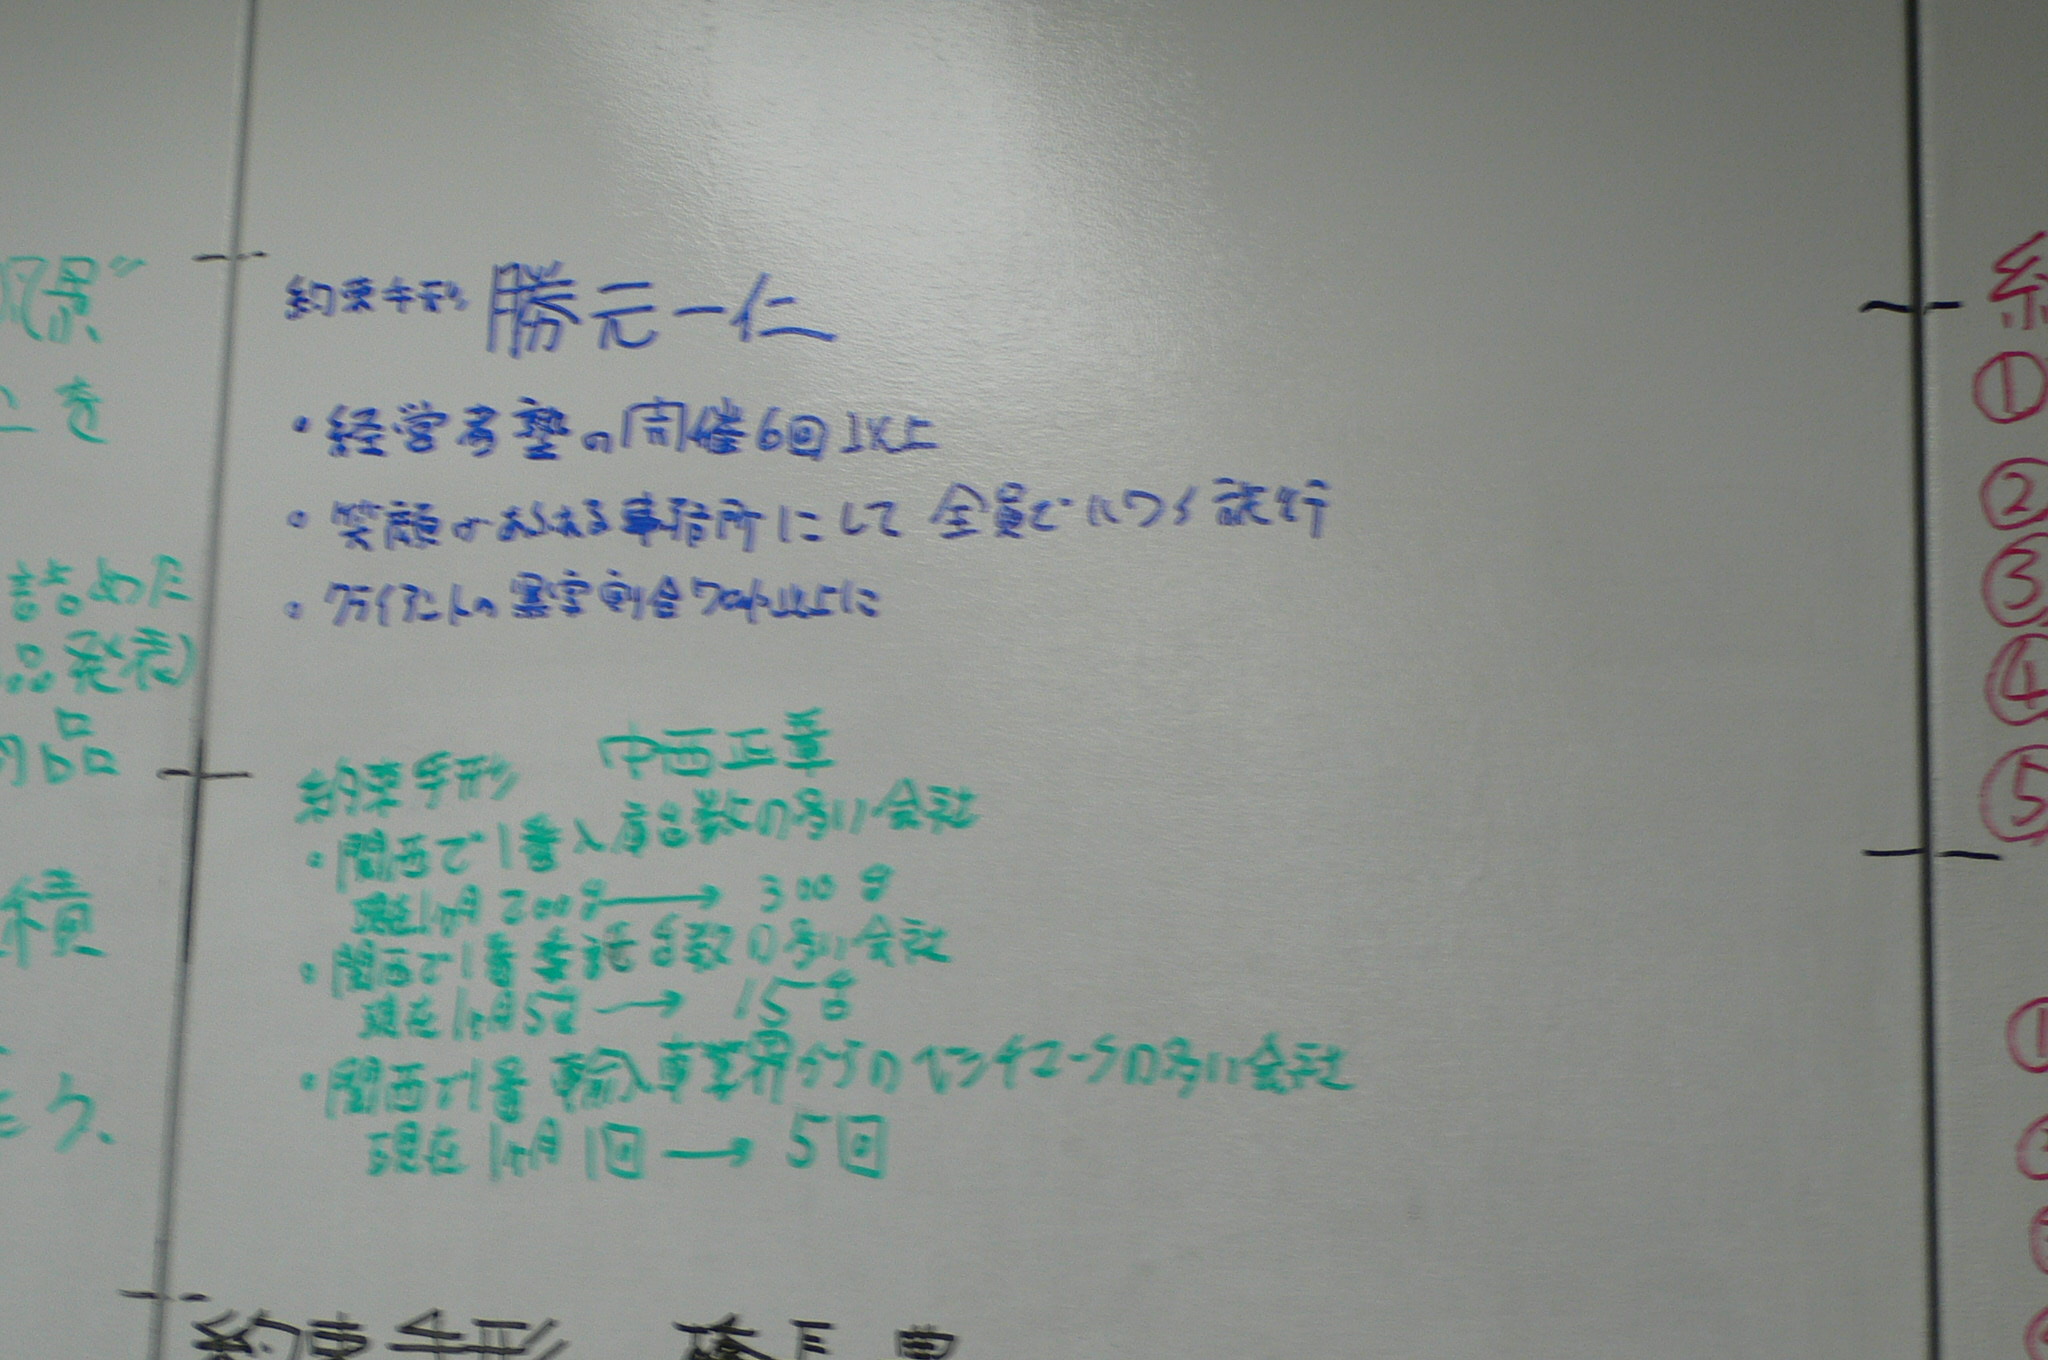 約束手形 勝元一仁
・経営者塾の開催6回以上
・笑顔があふれる事務所にして 全員でハワイ旅行
・クライアントの黒字割合70%以上に
約束手形 中西正華
・関西で1番入庫台数の多い会社
現在1ヶ月200台→300台
・関西で1番委託台数の多い会社
現在1ヶ月5台→15台
・関西で1番輸入車業界からのベンチマークの多い会社
現在1ヶ月1回→5回
約束手形
風景"
を
詰めた
品発表)
品
積
①
②
③
④
⑤
①